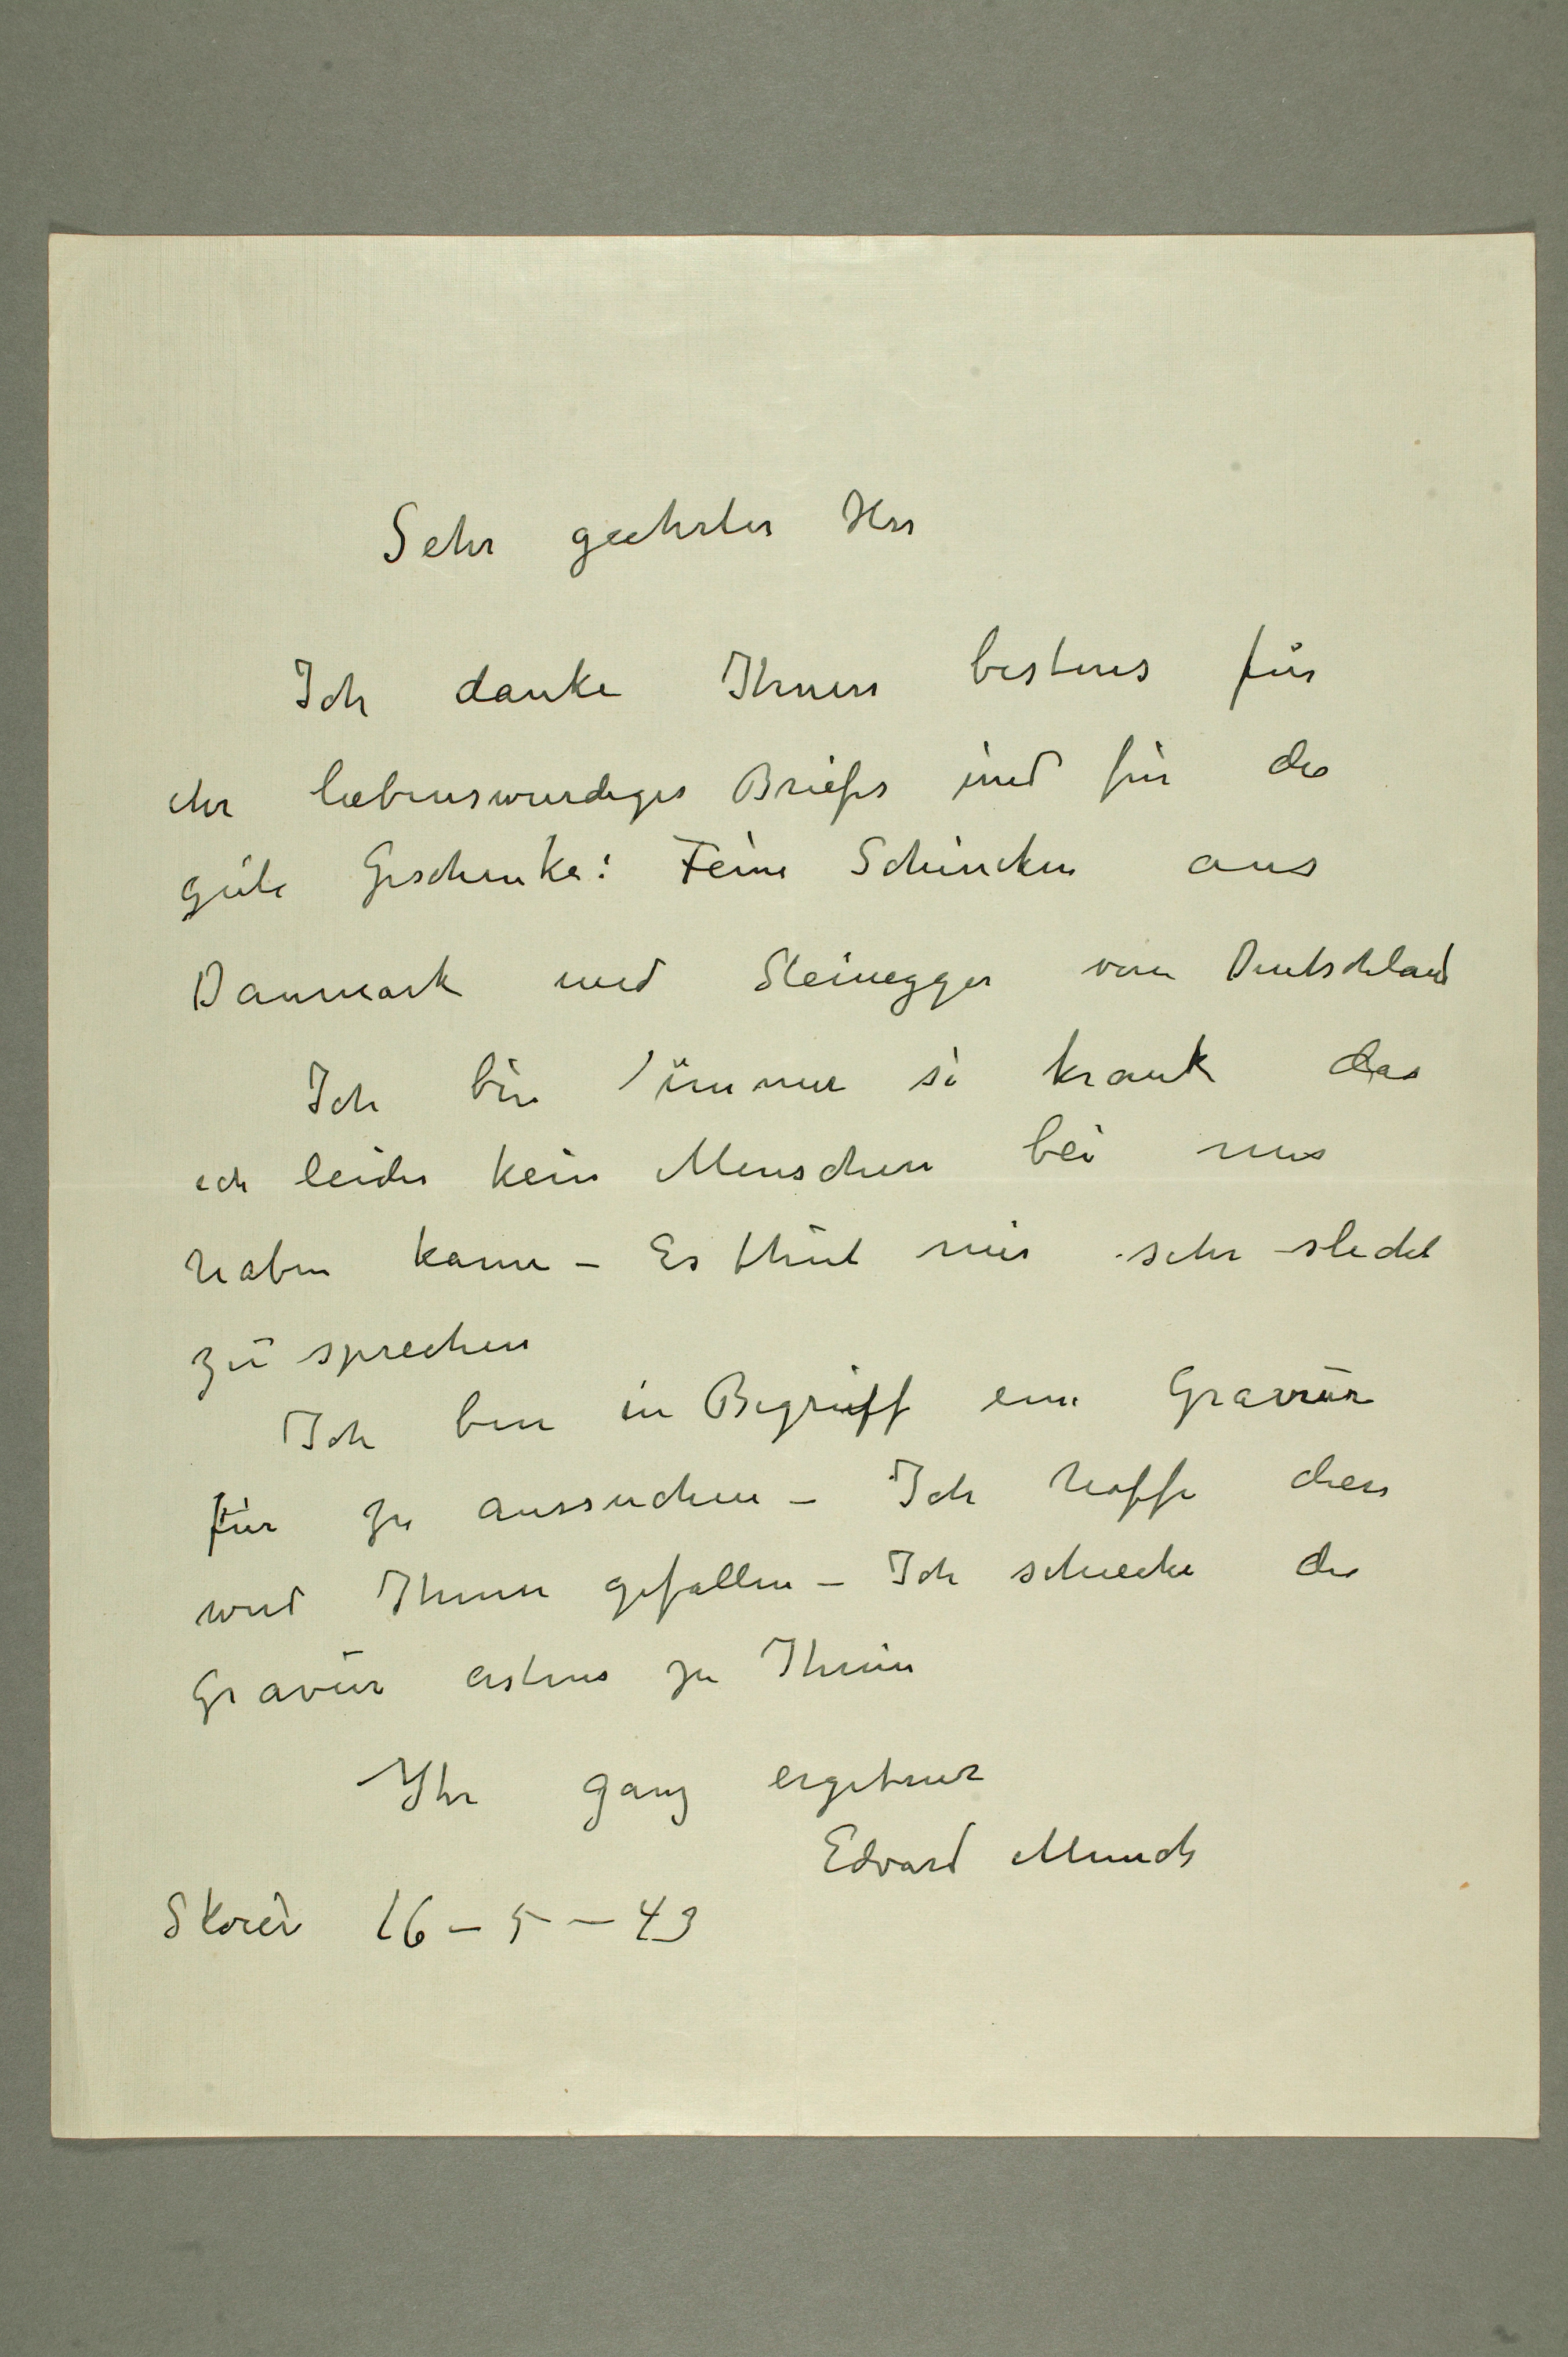 Sehr geehrter Herr
Ich danke Ihnen bestens für
ihr liebenswurdiges Briefes und für die
gute Geschenke: Feine Schincken aus
Danmark und Steinegger von Deutschland
Ich bin immer so krank das
ich leider kein Menschen bei uns
haben kann – Es thut mir sehr slecht
zu sprechen
Ich bin in Begriff eine Gravür
für zu aussuchen – Ich hoffe dies
wird Ihnen gefallen – Ich schicke die
Gravür erstens zu Ihnen
Ihr ganz ergebener
Edvard Munch
16 – 5 – 43